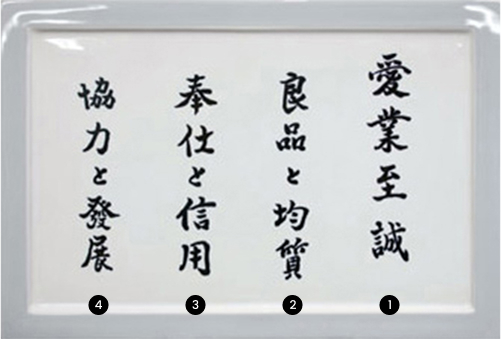 愛業至誠
良品と均質
奉仕と信用
協力と發展
1
2
3
4